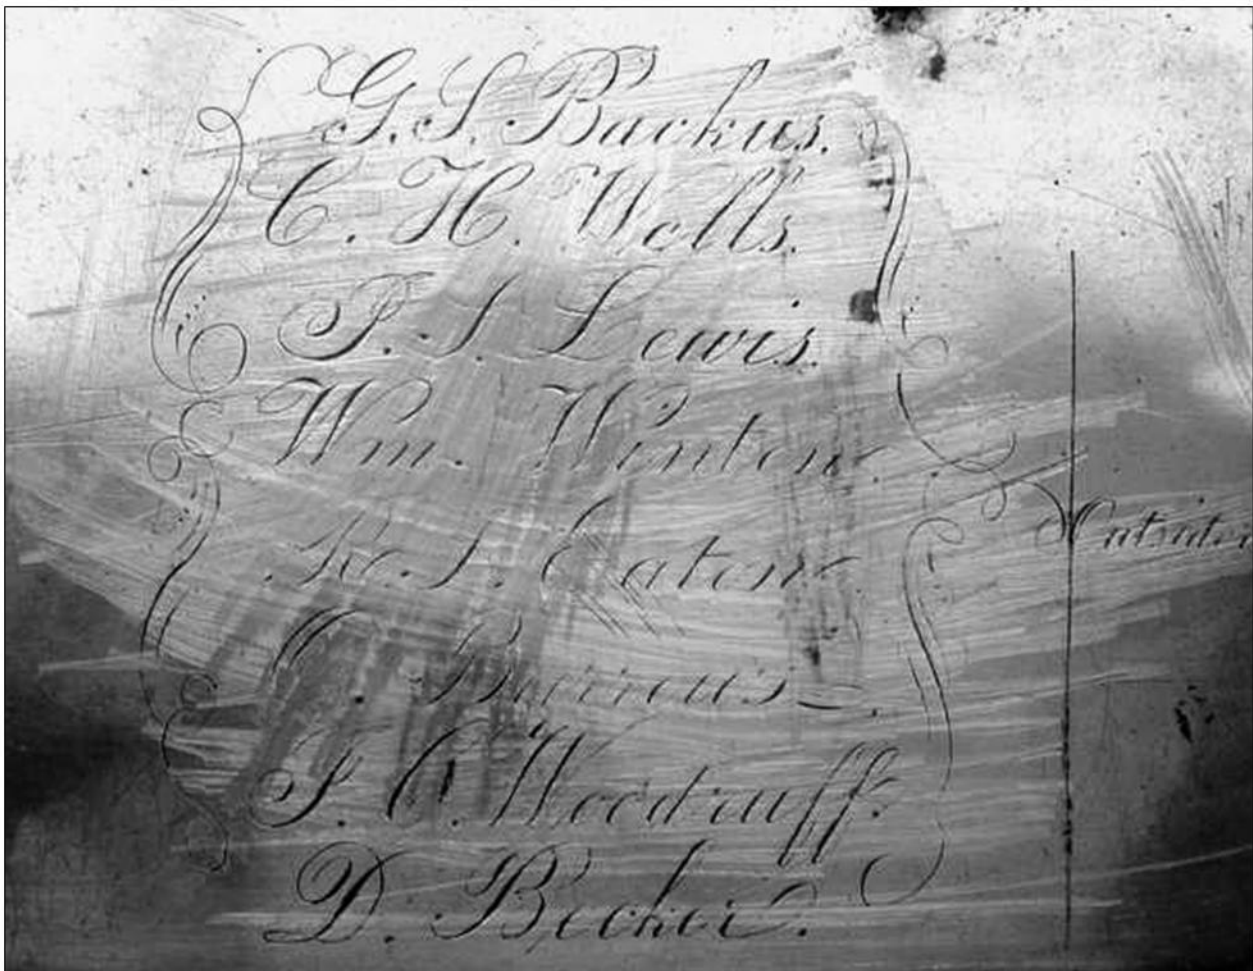 G. S. Backus.
C. H. Wells.
P. S. Lewis.
Wm. Winton
R. S. Eaton
Burrous
J. C. Woodruff.
D. Becker.